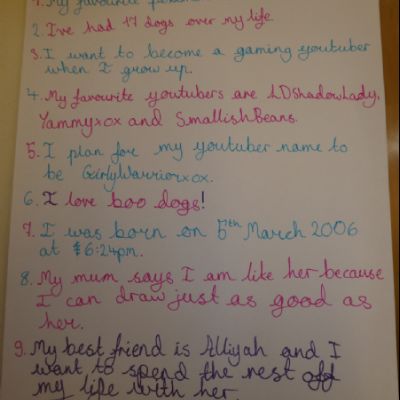 1. My favourite
2. I've had 17 dogs over my life.
3. I want to become a gaming youtuber
when I grow up.
4. My favourite youtubers are LDshadowLady,
Yammyxox and SmallishBeans.
5. I plan for my youtuber name to
be GirlyWarriorxox.
6. I love boo dogs!
7. I was born on 5th March 2006
at 6:24pm.
8. My mum says I am like her because
I can draw just as good as
her.
9. My best friend is Alliyah and I
want to spend the rest off
my life with her.